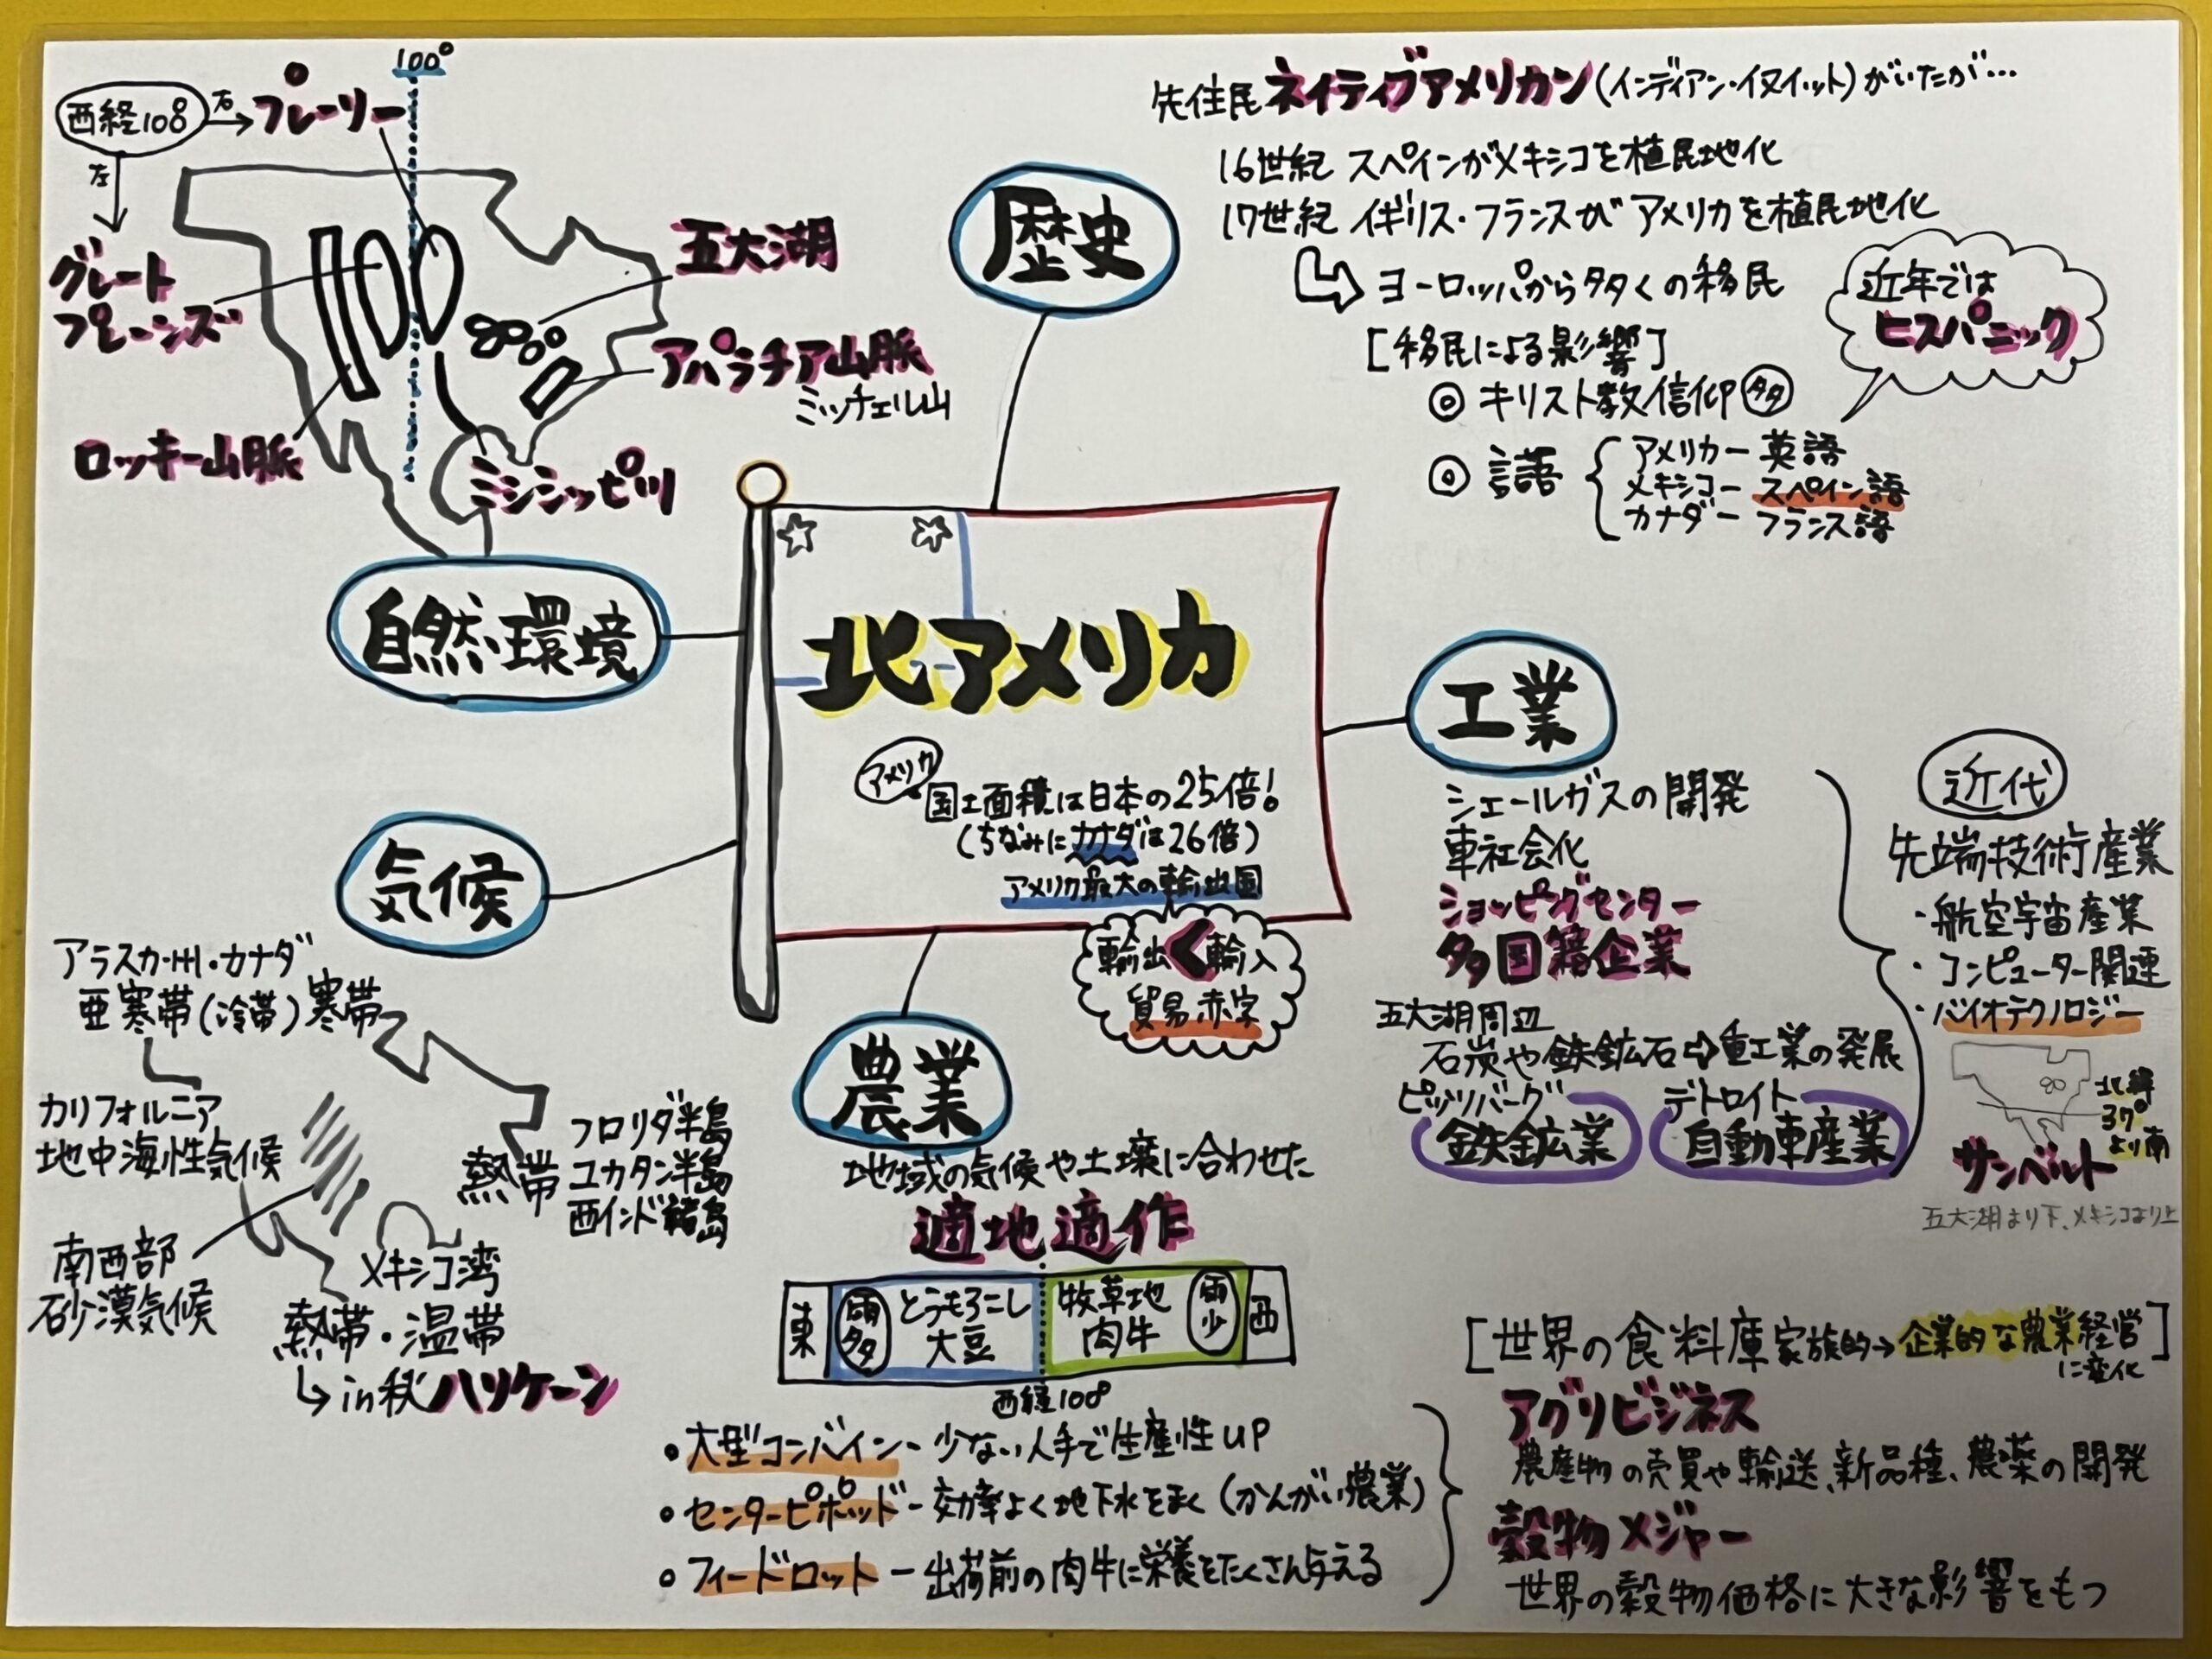 100°
西経100°
右
プレーリー
左
グレート
プレーンズ
五大湖
アパラチア山脈
ミッチェル山
ロッキー山脈
ミシシッピ川
自然・環境
歴史
先住民 ネイティブアメリカン(インディアン・イヌイット)がいたが…
16世紀 スペインがメキシコを植民地化
17世紀 イギリス・フランスがアメリカを植民地化
ヨーロッパから多くの移民
近年では
ヒスパニック
[移民による影響]
◎ キリスト教信仰 多
◎ 言語
アメリカー 英語
メキシコー スペイン語
カナダー フランス語
北アメリカ
アメリカ
国土面積は日本の25倍!
(ちなみにカナダは26倍)
アメリカ最大の輸出国
輸出<輸入
貿易赤字
工業
シェールガスの開発
車社会化
ショッピングセンター
多国籍企業
五大湖周辺
石炭や鉄鉱石⇨重工業の発展
ピッツバーグ
鉄鉱業
デトロイト
自動車産業
近代
先端技術産業
・航空宇宙産業
・コンピューター関連
・バイオテクノロジー
北緯
37°
より南
サンベルト
五大湖より下、メキシコより上
気候
アラスカ州・カナダ
亜寒帯(冷帯)寒帯
カリフォルニア
地中海性気候
南西部
砂漠気候
熱帯
フロリダ半島
ユカタン半島
西インド諸島
メキシコ湾
熱帯・温帯
↳in秋ハリケーン
農業
地域の気候や土壌に合わせた
適地適作
東
雨多
とうもろこし
大豆
牧草地
肉牛
雨少
西
西経100°
・大型コンバイン- 少ない人手で生産性UP
・センターピボッド- 効率よく地下水をまく(かんがい農業)
・フィードロット- 出荷前の肉牛に栄養をたくさん与える
[世界の食料庫 家族的→企業的な農業経営]
に変化
アグリビジネス
農産物の売買や輸送、新品種、農薬の開発
穀物メジャー
世界の穀物価格に大きな影響をもつ